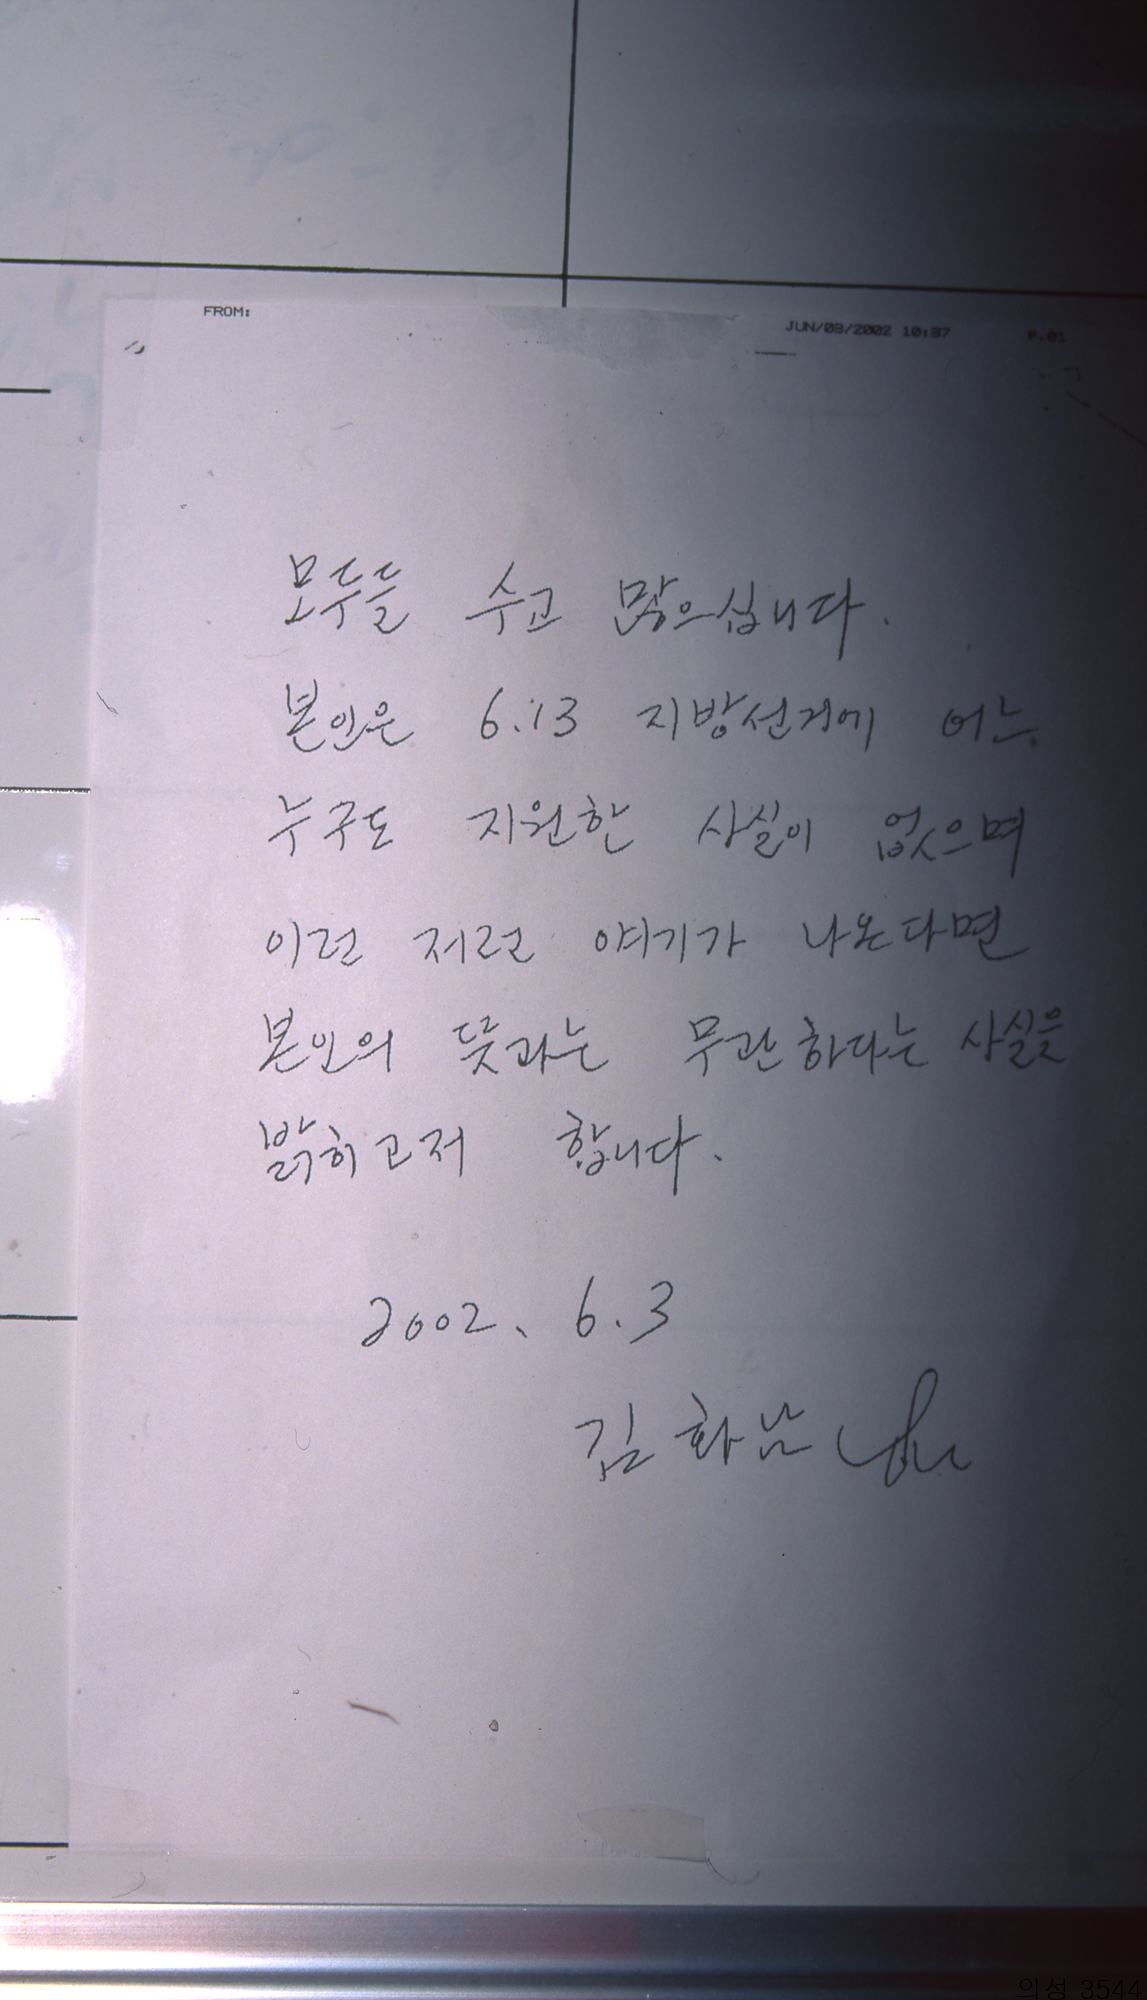 FROM: JUN/03/2002 10:37 P.01
모두들 수고 많으십니다.
본인은 6.13 지방선거에 어느
누구도 지원한 사실이 없으며
이런 저런 얘기가 나온다면
본인의 뜻과는 무관하다는 사실을
밝히고저 합니다.
2002. 6.3
김화남
의성 3544